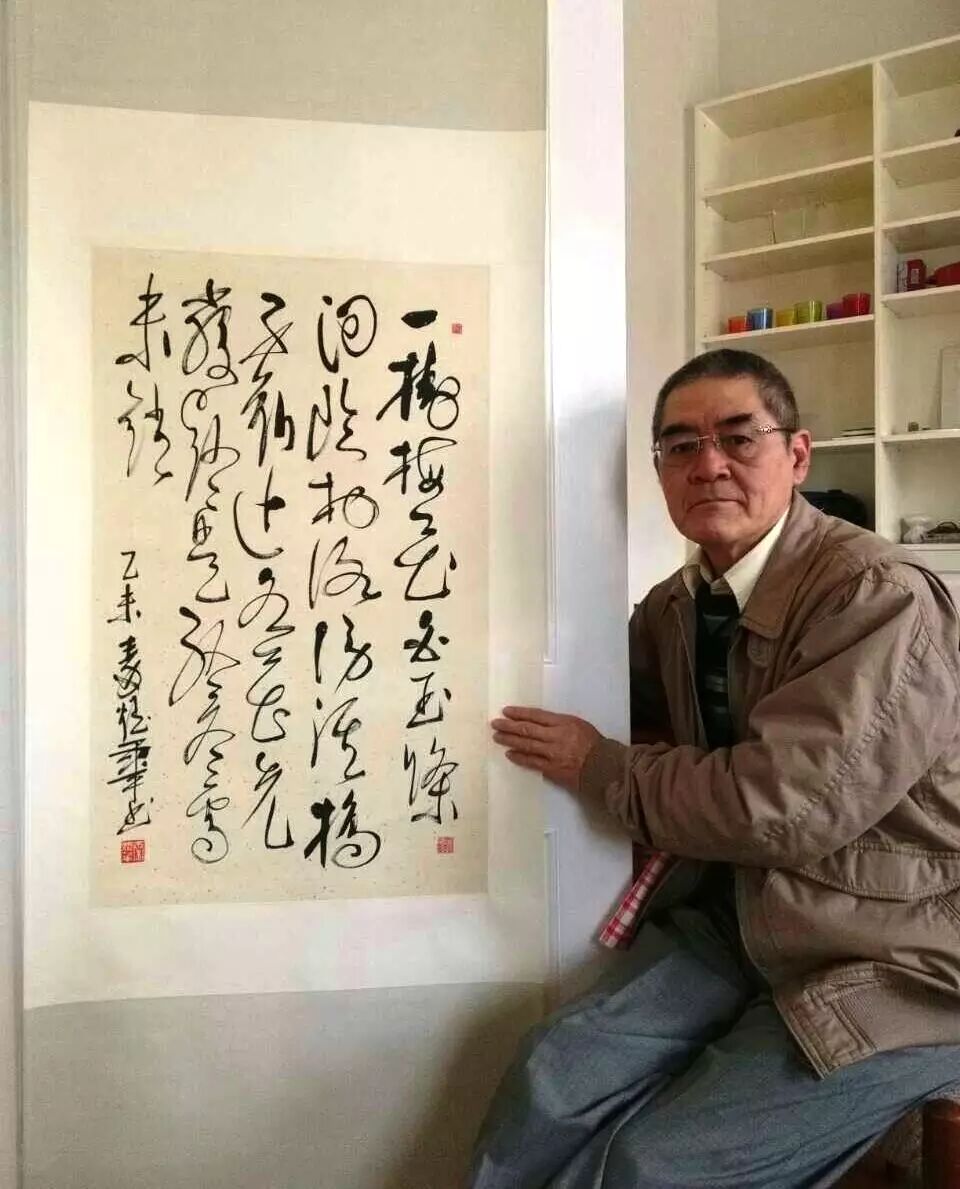 一樹梅花白玉條
迥臨村路傍溪橋
不知近水花先
發疑是經冬雪
未銷
乙未
書